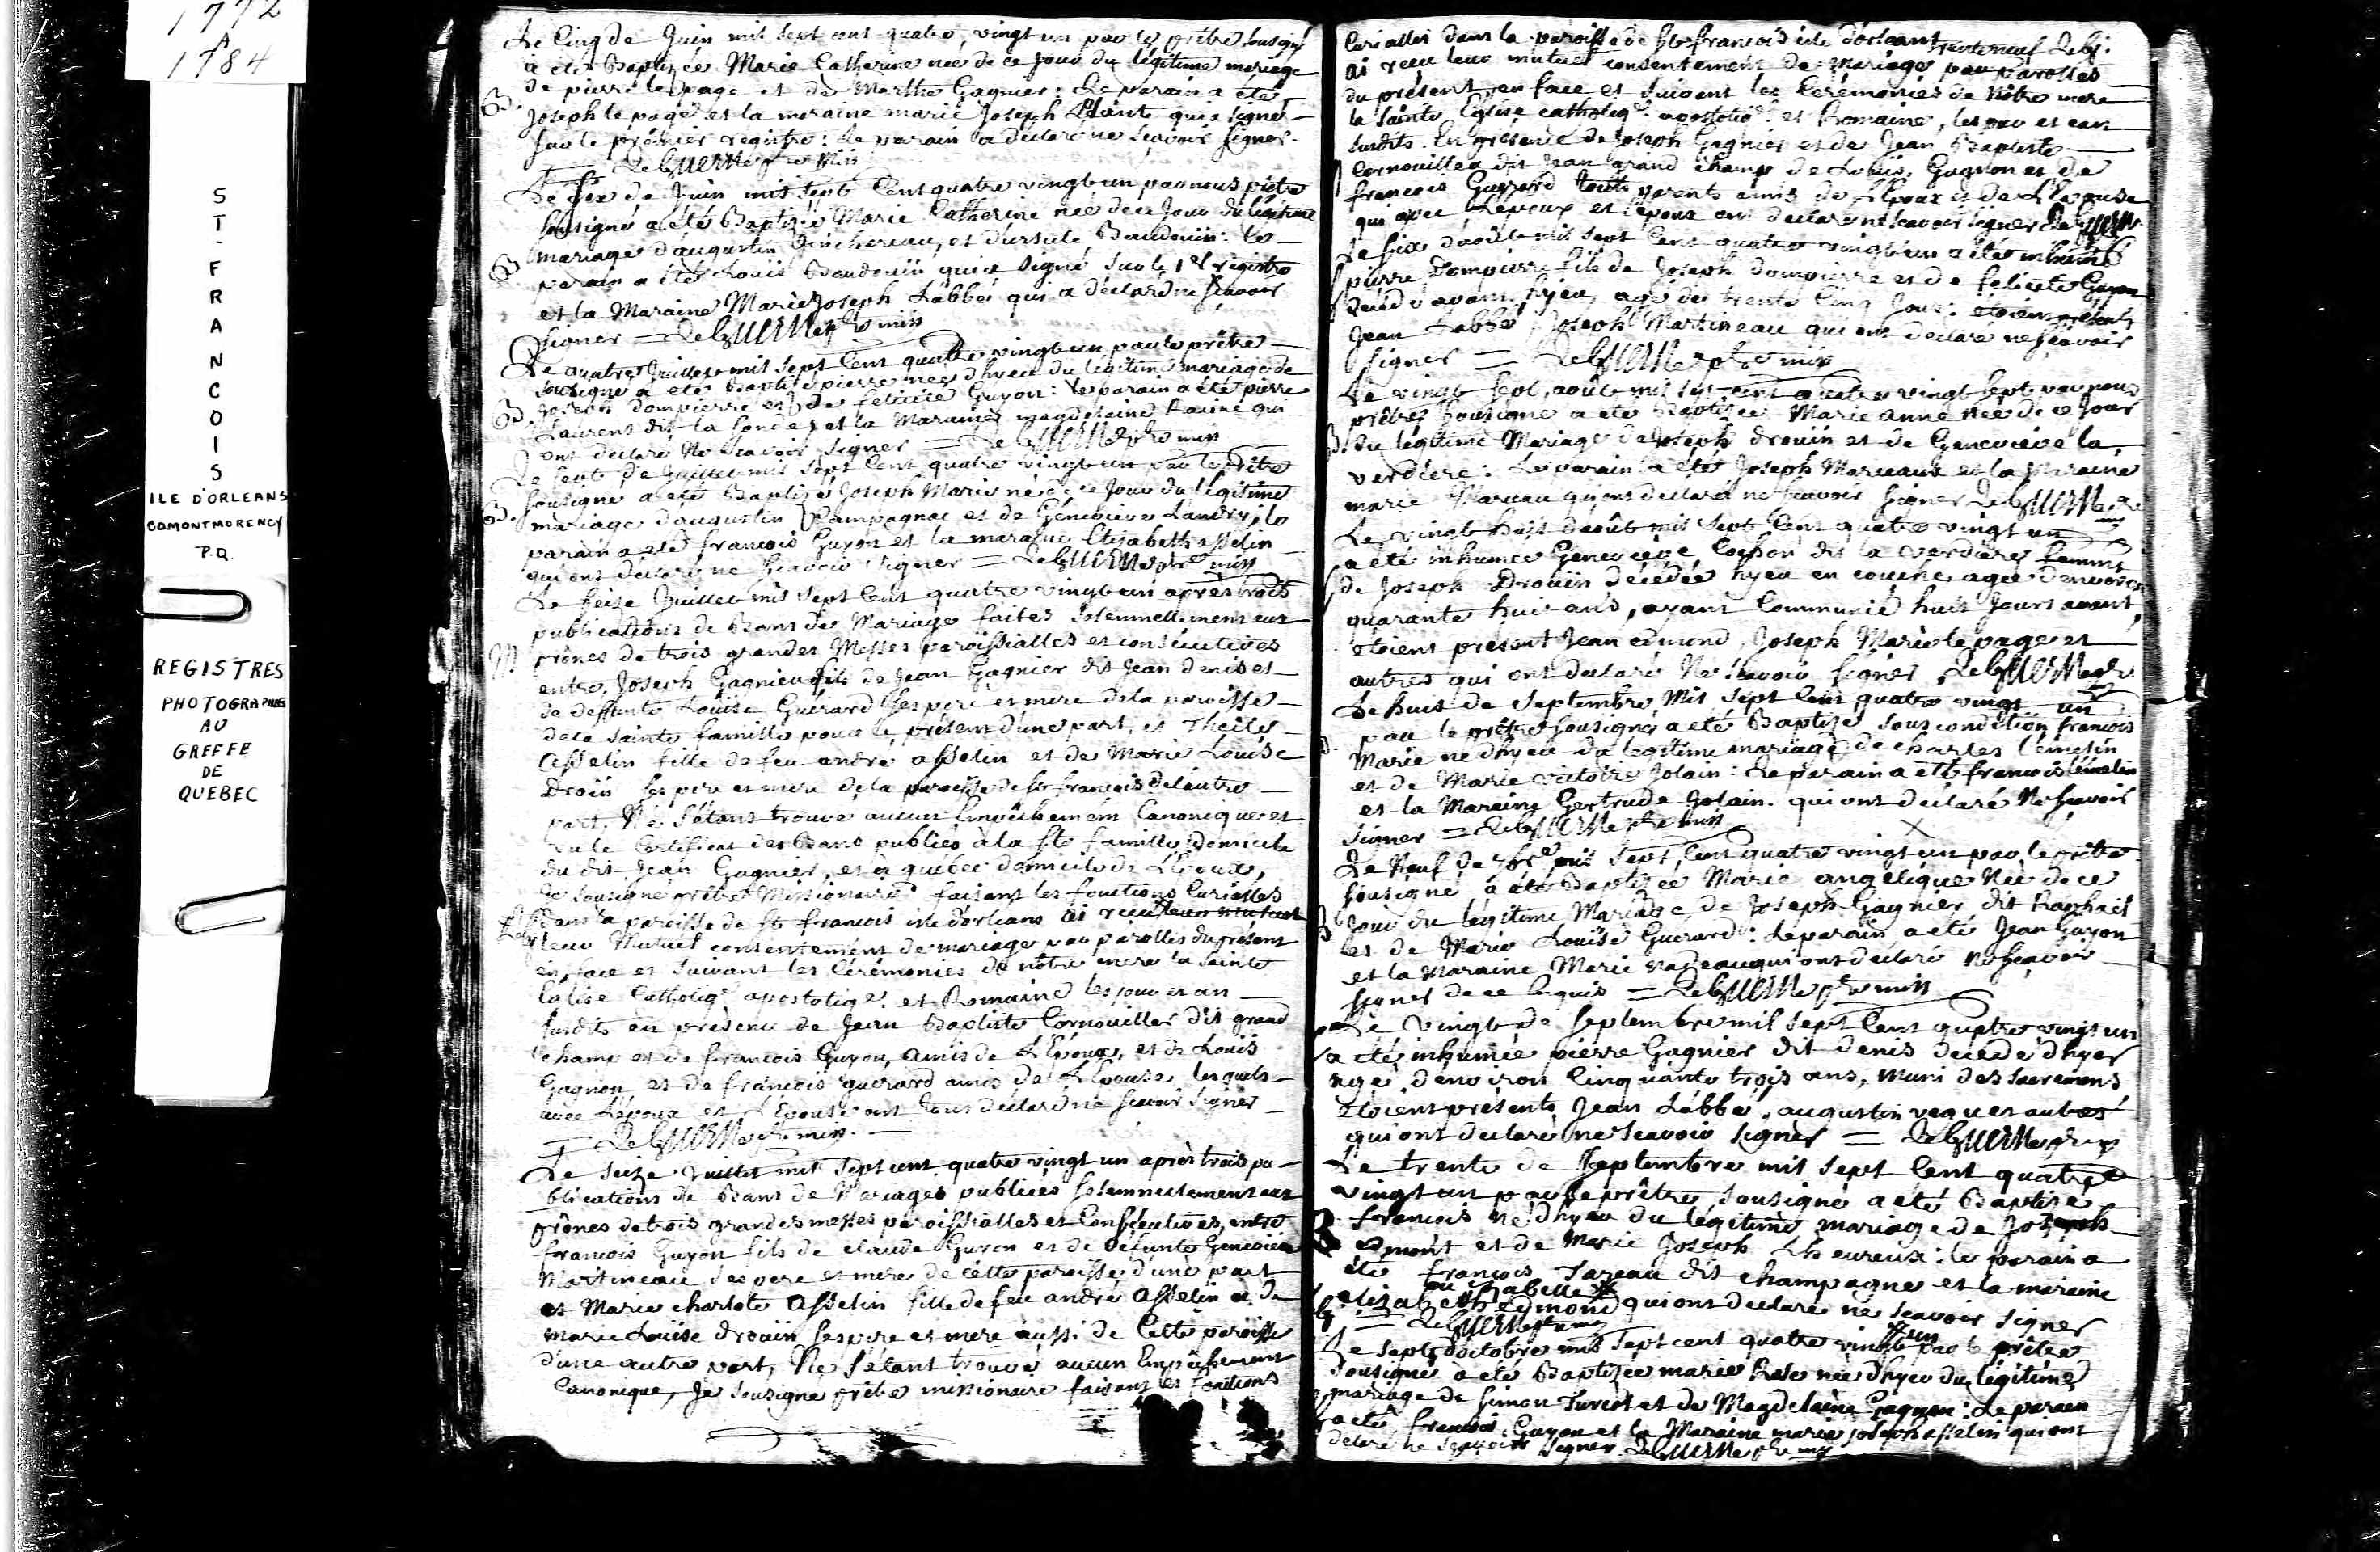 1772
A
1784
ST-FRANCOIS
ILE D'ORLEANS
CO MONTMORENCY
P.Q.
REGISTRES
PHOTOGRAPHIES
AU
GREFFE
DE
QUEBEC
Le Cinq de Juin mil sept cent quatre, vingt un par le prêtre sousigné
a eté Baptizée Marie Catherine née de ce jour du légitime mariage
de pierre lepage et de Marthe Gagnier: Le parain a été
B. Joseph le page et la maraine marie Joseph Plante qui a signé
sur le premier registre: le parain a declaré ne scavoir signer.
= DeLaguerne ptre miss
Le six de Juin mil sept Cent quatre vingt un par nous prêtre
sousigné a été Baptizée Marie Catherine née de ce Jour du légitime
mariage d'augustin et d'ursule Baudouin: le
B parain a été Louis Baudouin qui a signé sur le 1er registre
et la Maraine Marie Joseph Labbé qui a déclaré ne scavoir
signer =
Le quatre Juillet mil sept Cent quatre vingt un par le prêtre
sousigné a été Baptisé pierre né d'hyer du légitime mariage de
B. Joseph dompierre et de felicité Guyon: le parain a été pierre
Laurent dit la Sonde et la Maraine magdelaine Racine qui
ont declaré Ne Scavoir signer =
Le sept de Juillet mil sept Cent quatre vingt un par le prêtre
sousigné a été Baptizé Joseph Marie né de ce Jour du légitime
B. mariage d'augustin Campagnac et de Génevieve Landry; le
parain a été francois Guyon et la maraine Elisabeth asselin
qui ont declaré ne scavoir signer =
Le seise Juillet mil sept Cent quatre vingt un après trois
publications de Bans de Mariage faites solemnellement aux
M prônes de trois grandes Messes paroissialles et consécutives
entre, Joseph Gagnier fils de Jean Gagnier dit Jean denis et
de deffunte Louise Guérard ses pere et mere de la paroisse
de la sainte famille pour le présent d'une part, et Thècle
asselin fille de feu andré asselin et de Marie Louise
Droüin ses pere et mere de la paroisse de st francois de l'autre
part. Ne s'étant trouvé aucun Empêchement Canonique et
vu le Certificat des Bans publiés à la ste famille domicile
du dit Jean Gagnier, et à québec domicile de L'Epoux,
Je sousigné prêtre Missionaire faisant les fonctions Curialles
dans la paroisse de st francois isle d'orleans ai receu leur mutuel
leur Mutuel consentement de mariage par parolles du présent
en face et suivant les Cérémonies de nôtre mere la Sainte
Eglise Catholiqe apostoliqe et Romaine les jour et an
susdits en présence de Jean Baptiste Cornouiller dit grand
champ et de francois Guyon, amis de L'Epoux, et de Louis
Gagnon et de francois guerard amis de L'Epouse lesquels
avec L'époux et L'Epouse ont tous declaré ne scavoir signer
=
Le Seize Juillet mil Sept cent quatre vingt un après trois pu-
blications de Bans de Mariages publiées solemnellement aux
prônes de trois grandes messes paroissialles et Consécutives, entre
francois Guyon fils de claude Guyon et de défunte Genevieve
Martineau ses pere et mere de cette paroisse d'une part
et Marie charlote asselin fille de feu andré asselin et de
marie Louise drouin ses pere et mere aussi de Cette paroisse
d'une autre part, Ne s'étant trouvé aucun Empêchement
Canonique, Je sousigné prêtre missionaire faisant les fonctions
Curialles dans la paroisse de St francois isle d'orleans
ai receu leur mutuel consentement de Mariage par parolles
du présent en face et suivant les Cérémonies de Nôtre mere
la Sainte Eglise catholiqe apostoliqe et Romaine, les jour et an
susdits. En présence de Joseph Gagnier et de Jean Baptiste
Cornouiller dit Jean grand champ de Louis, Gagnon et de
francois Guerard touts parents amis de L'Epoux et de L'Epouse
qui avec L'epoux et l'epouse ont declaré ne scavoir signer
Le six d'aoûte mil sept Cent quatre vingt un a été inhumé
pierre Dompierre fils de Joseph dompierre et de felicité Guyon
décédé agé de trente Cinq Jours: étoient présents
Jean Labbé, Joseph Martineau qui ont declaré ne scavoir
signer =
Le vingt sept, août mil sept cent quatre vingt sept par nous
prêtre sousigné a été Baptizée Marie anne née de ce Jour
B. du légitime Mariage de Joseph droüin et de Genevieve la
verdiere: Le parain a été Joseph Marceau et la Maraine
marie Marceau qui ont declaré ne scavoir signer
Le vingt huit d'août mil sept Cent quatre vingt un
a été inhumée Genevieve Cochon dit la verdiere femme
de Joseph Droüin décédée hyer en couche agée d'environ
quarante huit ans, ayant Communié huit Jours avant,
étoient présent Jean edmond, Joseph Marie lepage et
autres qui ont declaré Ne scavoir signer
Le huit de Septembre Mil sept Cent quatre vingt un
par le prêtre sousigné a été Baptizé sous condition francois
Marie né d'hyer du legitime mariage de charles lémelin
et de Marie victoire Jolain: Le parain a été francois lémelin
et la Maraine Gertrude Jolain. qui ont declaré Ne scavoir
signer =
Le Neuf de 7bre mil sept Cent quatre vingt un par le prêtre
sousigné a été Baptizée Marie angelique Née de ce
B Jour du légitime Mariage de Joseph Gagnier dit Raphael
et de Marie Louise Guerard: Le parain a été Jean Guyon
et la Maraine Marie nadeau qui ont declaré Ne scavoir
signer de ce Requis =
Le vingt de septembre mil sept Cent quatre vingt un
a été inhumée pierre Gagnier dit denis décédé d'hyer
agé d'environ Cinquante trois ans, muni des sacremens
étoient présents Jean Labbé, augustin et autres
qui ont declaré ne scavoir signer =
Le trente de septembre mil sept Cent quatre
vingt un par le prêtre sousigné a été Baptisé
B francois né d'hyer du légitime mariage de Joseph
Emont et de Marie Joseph L'heureux: le parain a
été francois Tareau dit champagne et la maraine
ou isabelle
elizabeth edmond qui ont declaré ne scavoir signer
=
Le sept d'octobre mil sept cent quatre vingt un par le prêtre
sousigné a été Baptizée marie Rose née d'hyer du légitime
mariage de simon Turcot et de Magdelaine Gagnon: Le parain
a été francois Guyon et la Maraine marie joseph asselin qui ont
declaré ne scavoir signer